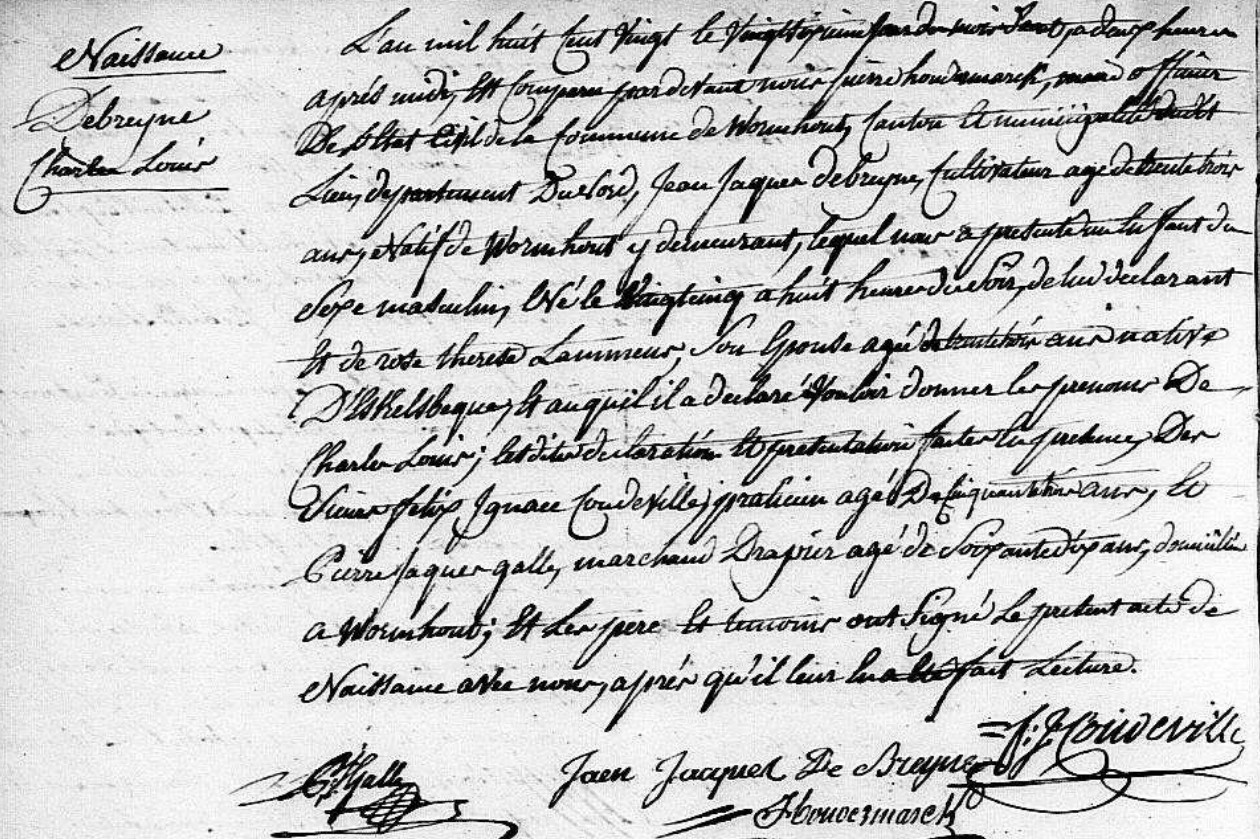 Naissance
Debreyne
Charles Louis
L'an mil huit cent vingt le vingt sixieme jour du mois d'aout, a deux heures
après midi, Est Comparu pardevant nous pierre houdemarck, maire officier
De l'Etat Civil de la Commune de Wormhout, Canton Et municipalité dudit
Lieu, departement Du Nord, Jean Jaques debreyne, Cultivateur agé de trente trois
ans, Natif de Wormhout y demeurant, lequel nous a presenté un Enfant du
Sexe masculin, Né le vingtcinq a huit heures du Soir, de lui declarant
Et de rose therese Lammens, Son Epouse agée de trente trois ans native
D'Eskelsbeque, Et auquel il a declaré vouloir donner les prenoms De
Charles Louis; lesdites declaration Et presentation faites En presence, Des
Sieurs felix Ignace Coudeville, praticien agé De Cinquante trois ans, Et
Pierre Jaques galle, marchand Drapier agé de Soixante dix ans, domiciliés
a Wormhout; Et Les pere Et temoins ont Signé Le present acte de
Naissance avec nous, après qu'il leur En a Eté fait Lecture.
P. J. Galle
Jaen Jacques De Breyne
F. J. Coudeville
Houdesmarck